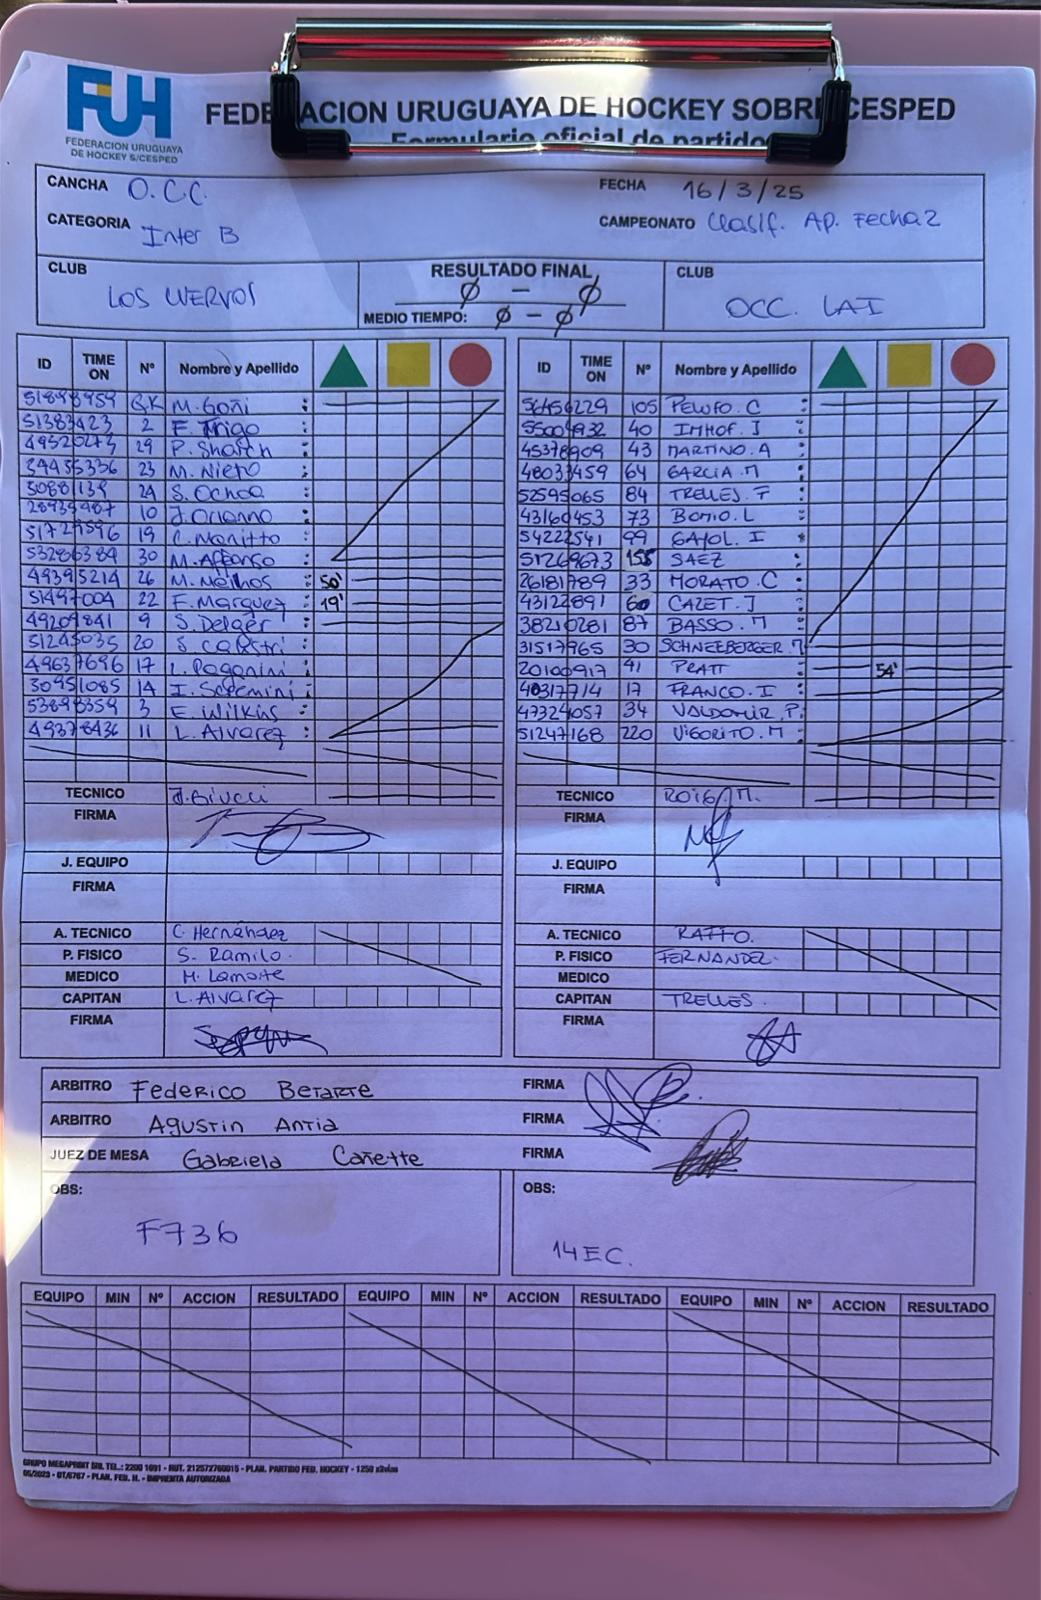 FUH
FEDERACION URUGUAYA
DE HOCKEY S/CESPED
FEDERACION URUGUAYA DE HOCKEY SOBRE CESPED
Formulario oficial de partido
CANCHA O.C.C. FECHA 16/3/25
CATEGORIA Inter B CAMPEONATO Clasif. Ap. Fecha 2
CLUB LOS CUERVOS RESULTADO FINAL Ø - Ø CLUB OCC. LAI
MEDIO TIEMPO: Ø - Ø
ID TIME ON Nº Nombre y Apellido ID TIME ON Nº Nombre y Apellido
GK M. Goñi 56456229 105 PELUFO. C
51383423 2 F. Trigo 55004932 40 IMHOF. I
29 P. 45378909 43 MARTINO. A
34455336 23 M. Nieto 48033459 64 GARCIA. M
3088139 24 S. Ochoa 52595065 84 TRELLES. F
10 J. 43160453 73 BOMIO. L
51729596 19 54222541 99 GAYOL. I
53286389 30 M. Affonso 51269673 155 SAEZ
49395214 26 M. 50' 26181789 33 MORATO. C
51497004 22 F. Marquez 19' 43122891 60 CAZET. J
49209841 9 S. 38210281 87 BASSO. M
51245035 20 S. 31517965 30 SCHNEEBERGER. M
49637696 17 L. Paganini 20100917 41 PRATT 54'
30951085 14 I. 40317714 17 FRANCO. I
3 E. Wilkins 47324057 34 VALDOMIR. P.
49378436 11 L. Alvarez 51247168 220 VIGORITO. M
TECNICO TECNICO ROIG. M.
FIRMA FIRMA
J. EQUIPO J. EQUIPO
FIRMA FIRMA
A. TECNICO C. Hernández A. TECNICO RATTO.
P. FISICO S. Ramilo. P. FISICO FERNANDEZ.
MEDICO M. Lamoite MEDICO
CAPITAN L. Alvarez CAPITAN TRELLES.
FIRMA FIRMA
ARBITRO Federico Betarte FIRMA
ARBITRO Agustin Antia FIRMA
JUEZ DE MESA Gabriela Cañette FIRMA
OBS: OBS:
F736 14 EC.
EQUIPO MIN Nº ACCION RESULTADO EQUIPO MIN Nº ACCION RESULTADO EQUIPO MIN Nº ACCION RESULTADO
GRUPO MEGAPRINT SRL TEL.: 2200 1691 - RUT. 212572760015 - PLAN. PARTIDO FED. HOCKEY - 1250 x3vias
05/2023 - OT/6767 - PLAN. FED. H. - IMPRENTA AUTORIZADA